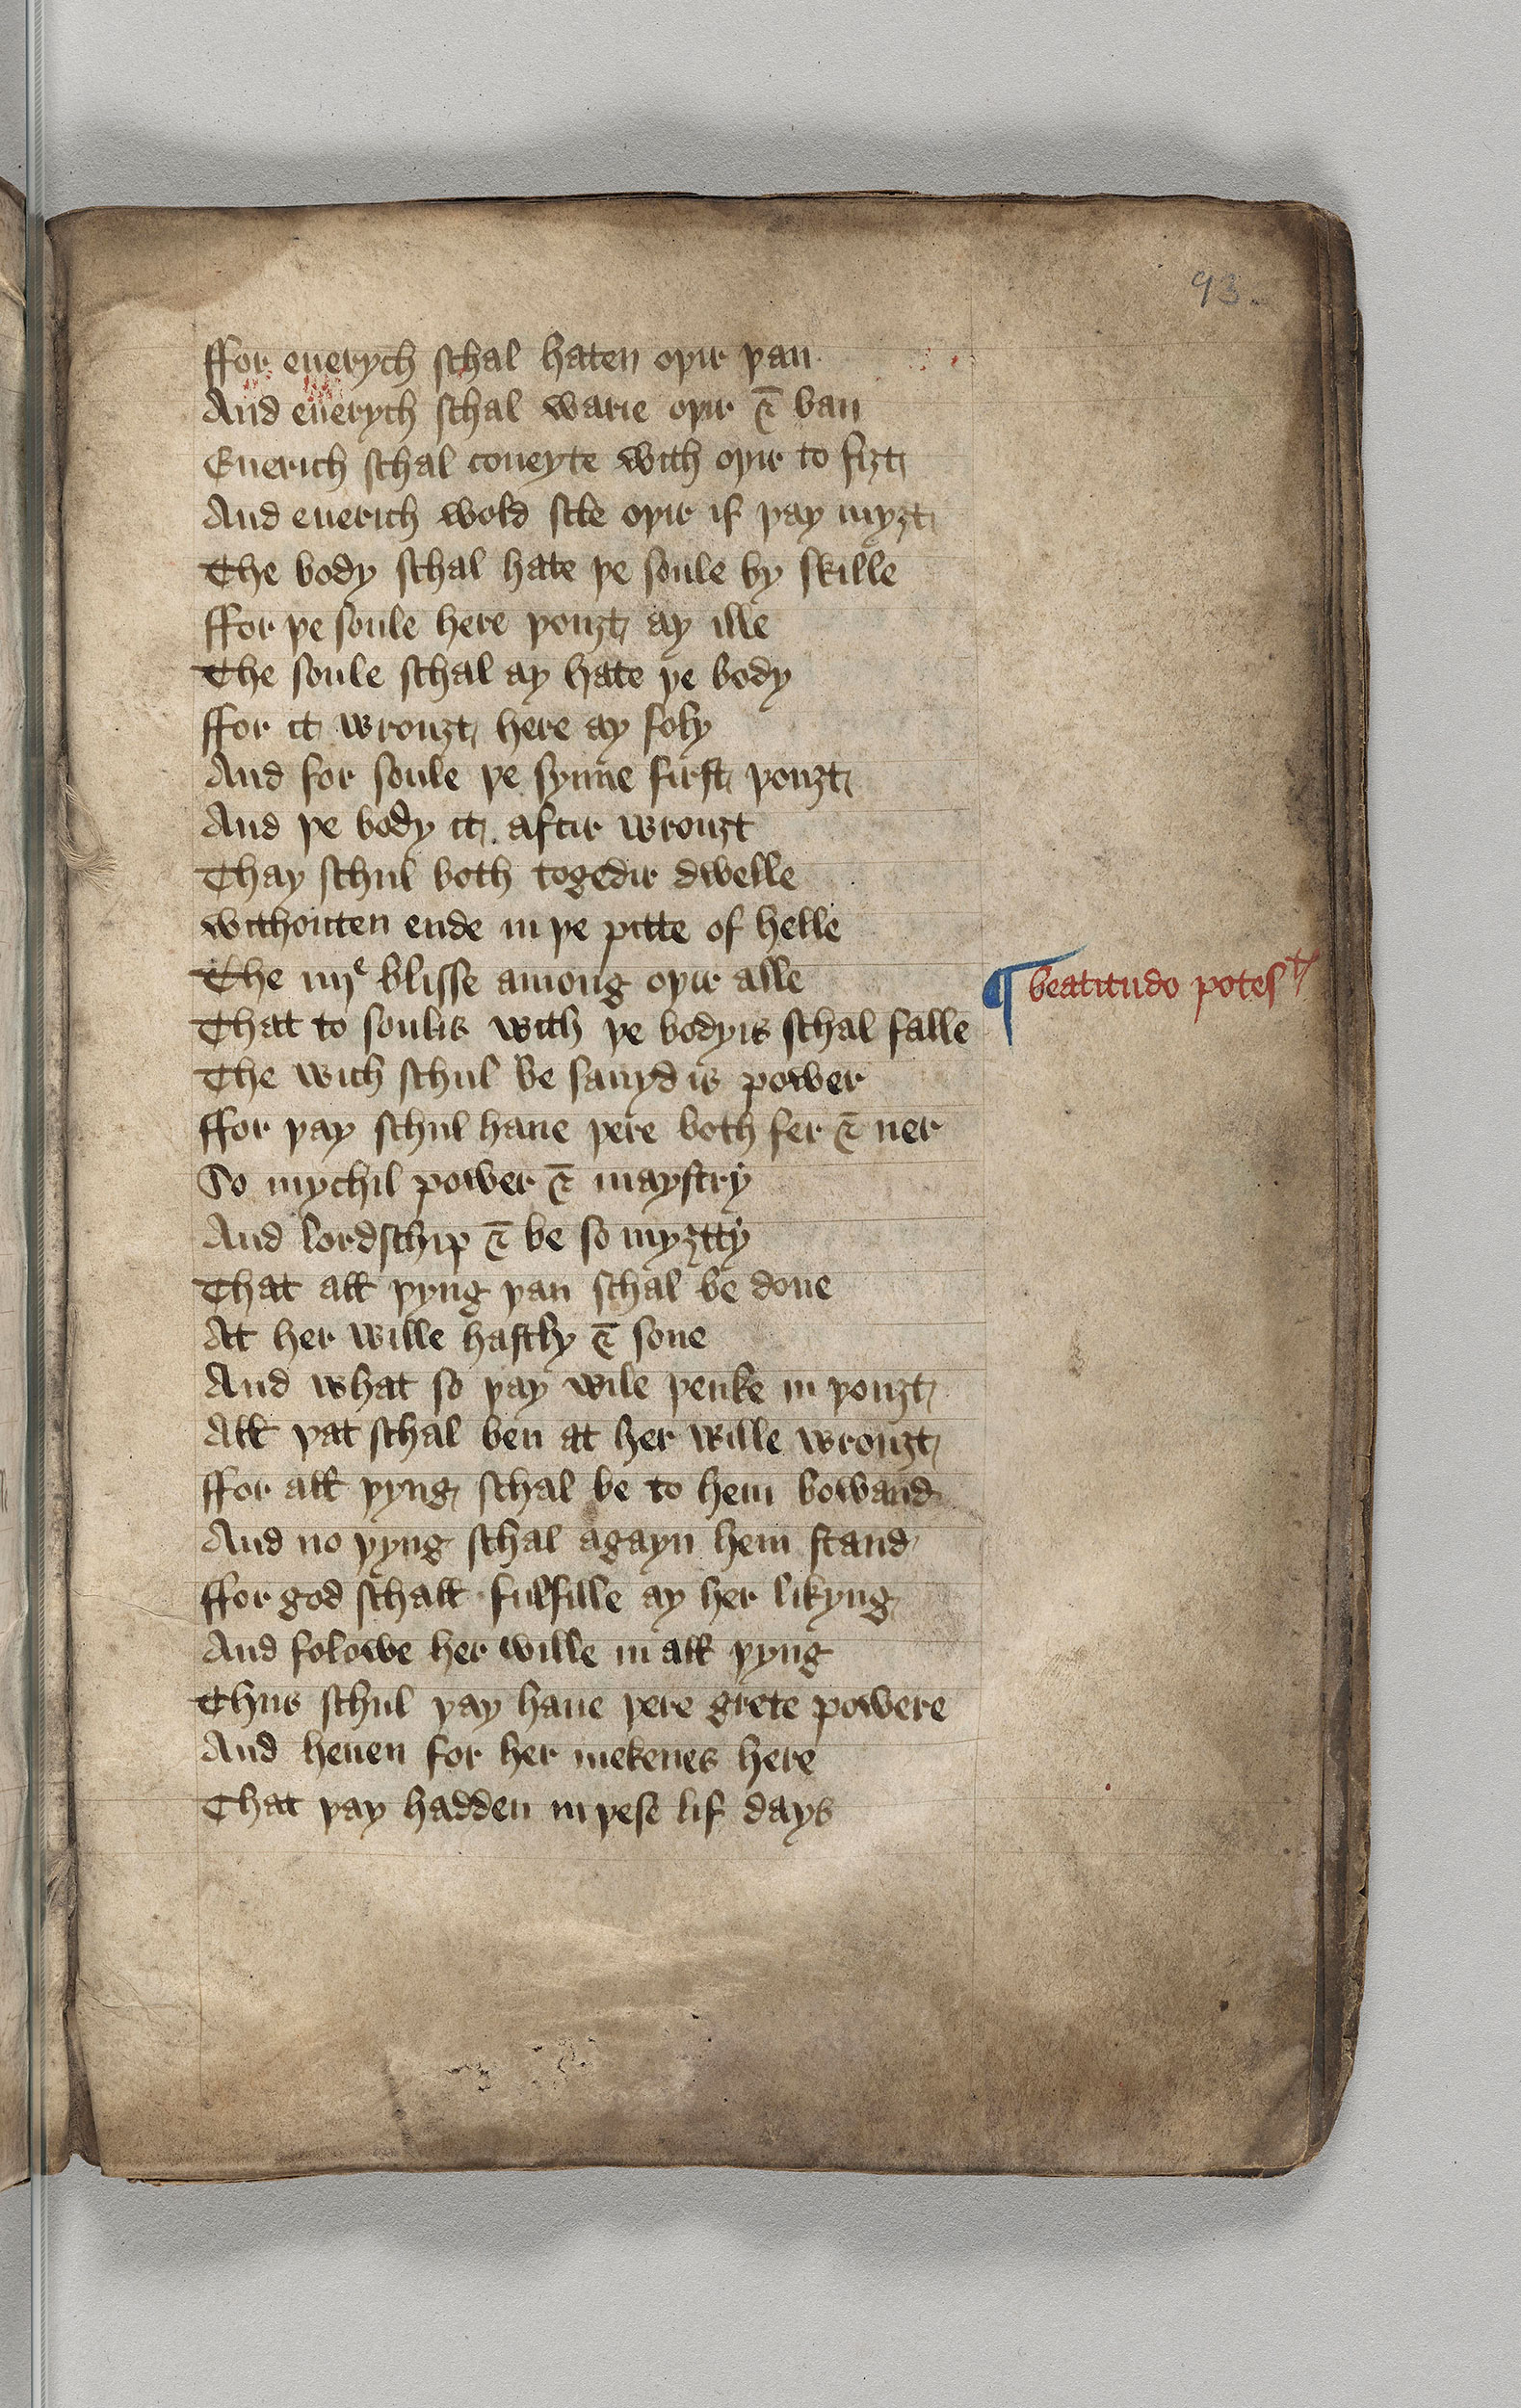 93.
ffor euerych schal haten oþir þan
And euerych schal warie oþir & ban
Euerich schal coueyte with oþir to fizt
And euerich wold scle oþir if þay myzt
The body schal hate þe soule by skille
ffor þe soule here þouzt ay ille
The soule schal ay hate þe body
ffor it wrouzt here ay foly
And for soule þe synne first þouzt
And þe body it aftir wrouzt
Thay schul both togedir dwelle
withouten ende in þe pitte of helle
The iiijᵉ blisse among oþir alle
¶ beatitudo potesᵗ
That to soulis with þe bodyis schal falle
The wich schul be sauyd is power
ffor þay schul haue þere both fer & ner
So mychil power & maystry
And lordschip & be so myztty
That all þyng þan schal be done
At her wille hastly & sone
And what so þay wile þenke in þouzt
All þat schal ben at her wille wrouzt
ffor all þyng schal be to hem bowand
And no þyng schal agayn hem stand
ffor god schall fulfille ay her likyng
And folowe her wille in all þyng
Thus schul þay haue þere grete powere
And heuen for her mekenes here
That þay hadden in þese lif days